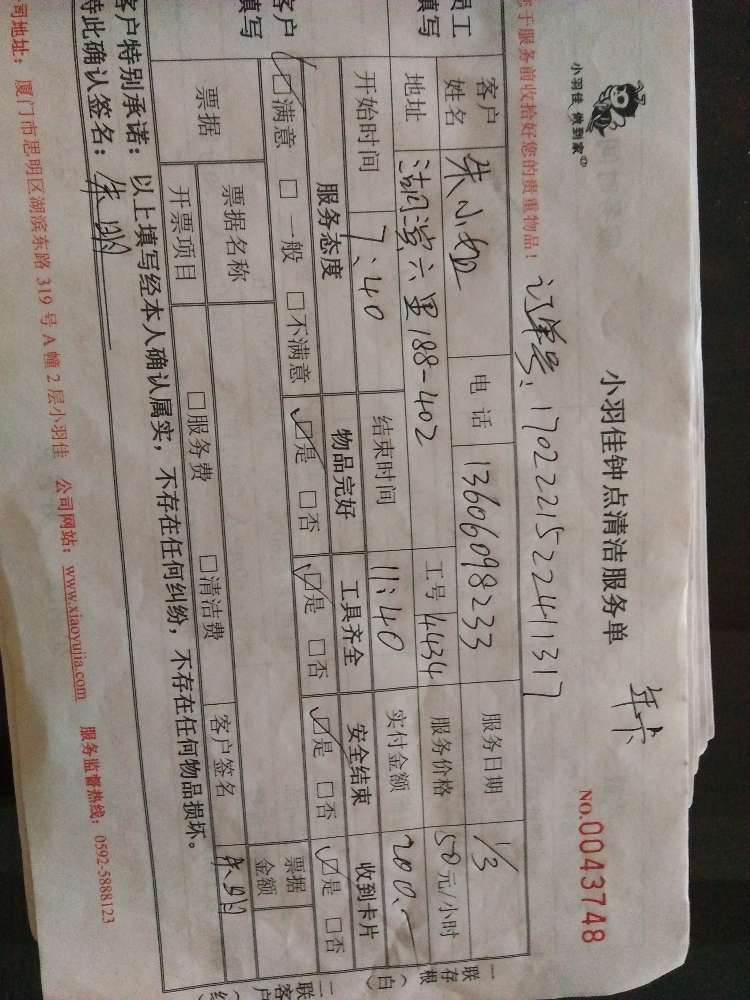 小羽佳 做到家
小羽佳钟点清洁服务单
年卡
NO.0043748
于服务前收拾好您的贵重物品！
订单号：170222152241317
员工
填写
客户
姓名
朱小姐
电话
13606098233
服务日期
1/3
地址
湖滨六里188-402
工号
4434
服务价格
50元/小时
开始时间
7:40
结束时间
11:40
实付金额
200.-
客户
填写
服务态度
物品完好
工具齐全
安全结束
收到卡片
☑满意 □一般 □不满意
☑是 □否
☑是 □否
☑是 □否
☑是 □否
票据
票据名称
票据
金额
开票项目
□服务费 □清洁费
客户签名
客户特别承诺：以上填写经本人确认属实，不存在任何纠纷，不存在任何物品损坏。
特此确认签名：
司地址：厦门市思明区湖滨东路 319 号 A 幢 2 层小羽佳 公司网站：www.xiaoyujia.com 服务监督热线：0592-5888123
一联
存根
（白）
二联
客户